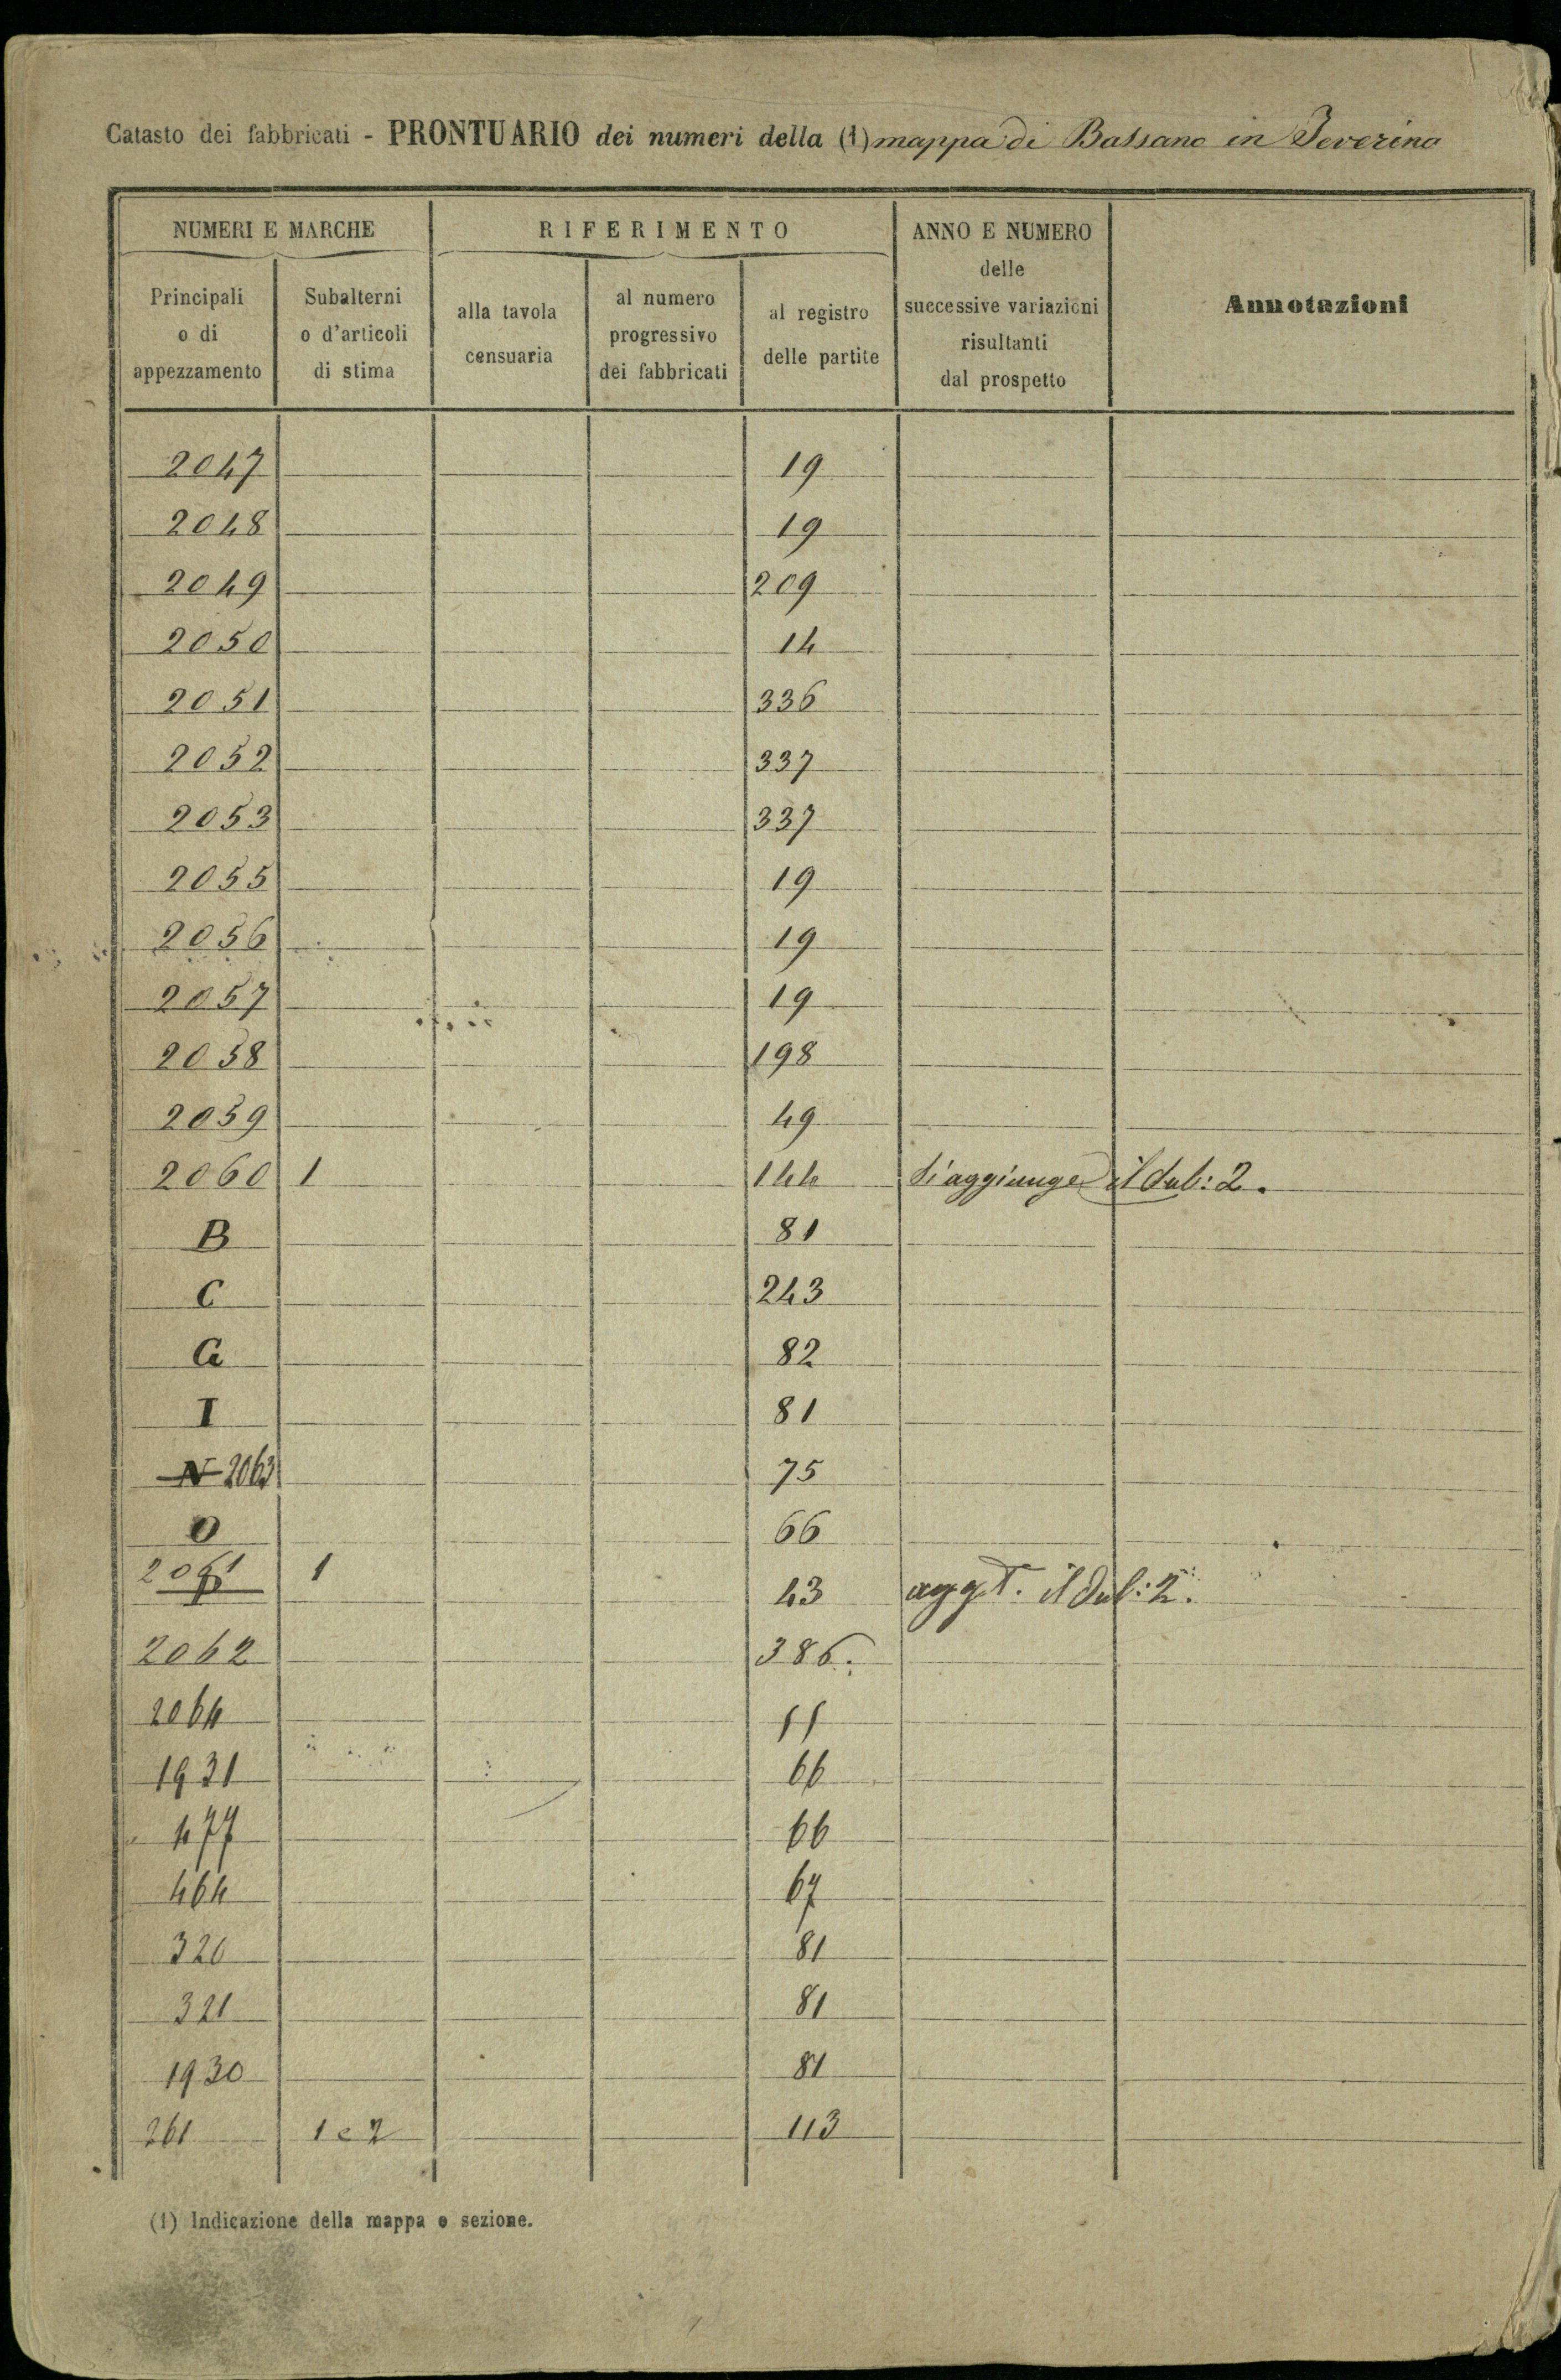 Catasto dei fabbricati - PRONTUARIO dei numeri della (1) mappa di Bassano in Teverina
NUMERI E MARCHE
RIFERIMENTO
ANNO E NUMERO
delle
successive variazioni
risultanti
dal prospetto
Annotazioni
Principali
o di
appezzamento
Subalterni
o d'articoli
di stima
alla tavola
censuaria
al numero
progressivo
dei fabbricati
al registro
delle partite
2047 19
2048 19
2049 209
2050 14
2051 336
2052 337
2053 337
2055 19
2056 19
2057 19
2058 198
2059 49
2060 1 144 Si aggiunge il Sub: 2.
B 81
C 243
G 82
I 81
N 2063 75
O 66
2061 1 43 aggt. il Sub: 2.
2062 386.
2064 11
1931 66
477 66
464 67
320 81
321 81
1930 81
261 1 e 2 113
(1) Indicazione della mappa o sezione.